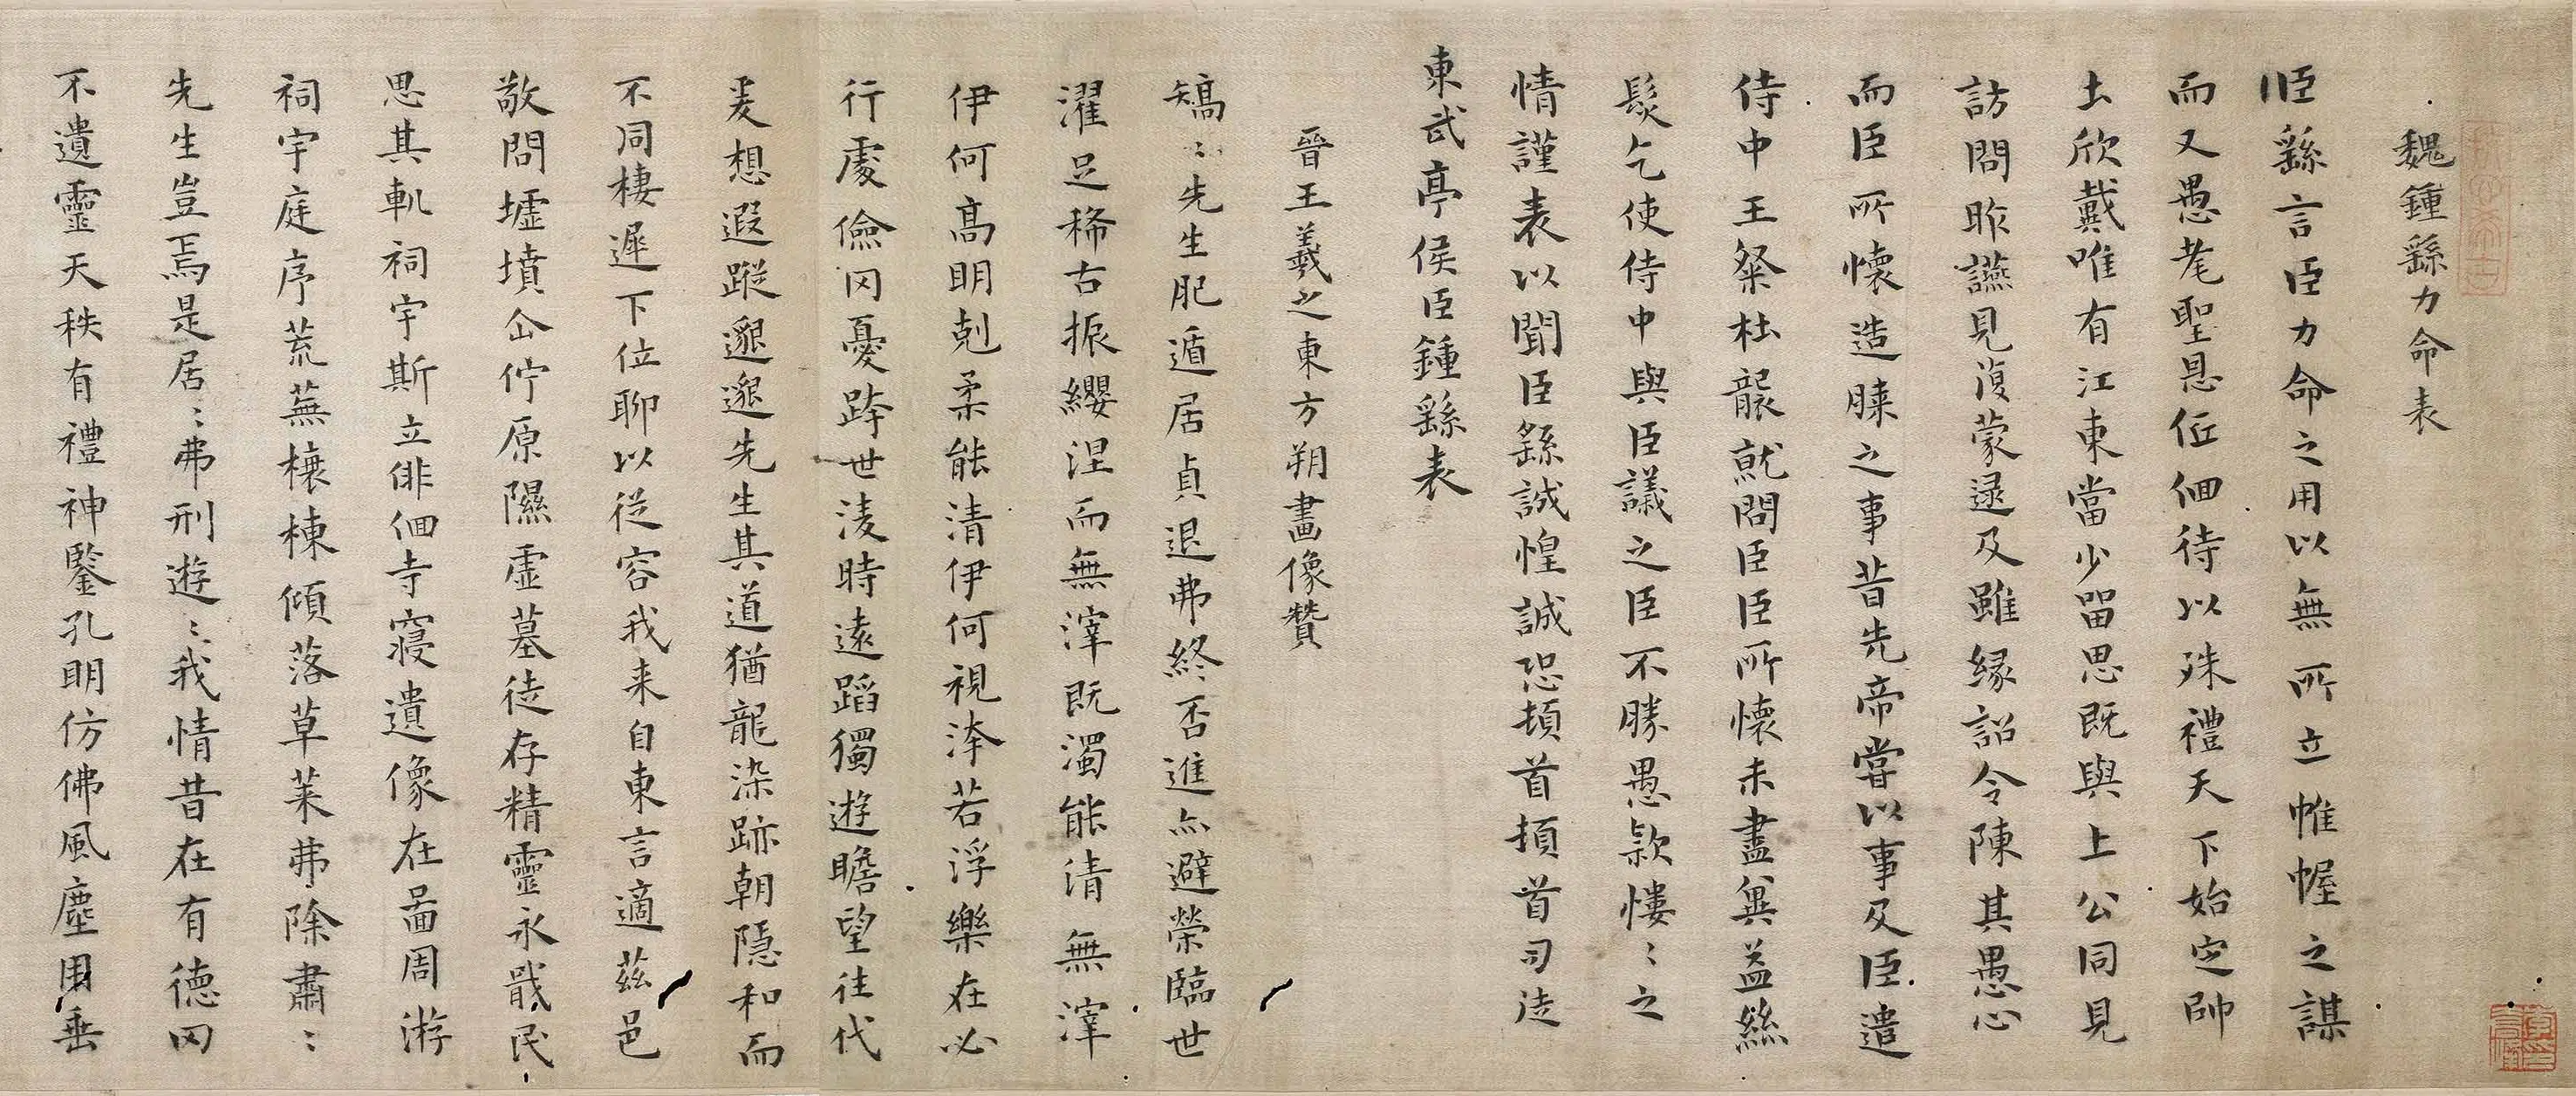 魏鍾繇力命表
臣繇言臣力命之用以無所立帷幄之謀
而又愚耄聖恩低佪待以殊禮天下始定帥
土欣戴唯有江東當少留思既與上公同見
訪問昨讌見復蒙逮及雖緣詔令陳其愚心
而臣所懷造膝之事昔先帝嘗以事及臣遣
侍中王粲杜襲就問臣臣所懷未盡冀益絲
髮乞使侍中與臣議之臣不勝愚款慺〻之
情謹表以聞臣繇誠惶誠恐頓首頓首司徒
東武亭侯臣鍾繇表
晉王羲之東方朔畫像贊
矯〻先生肥遁居貞退弗終否進亦避榮臨世
濯足稀古振纓涅而無滓既濁能清無滓
伊何高明剋柔能清伊何視洿若浮樂在必
行處儉罔憂跨世淩時遠蹈獨遊瞻望往代
爰想遐蹤邈邈先生其道猶龍染跡朝隱和而
不同棲遲下位聊以從容我来自東言適茲邑
敬問墟墳企佇原隰虛墓徒存精靈永戢民
思其軌祠宇斯立俳佪寺寢遺像在啚周游
祠宇庭序荒蕪榱棟傾落草萊弗除肅〻
先生豈焉是居〻弗刑遊〻我情昔在有德罔
不遺靈天秩有禮神鑒孔明仿佛風塵用垂